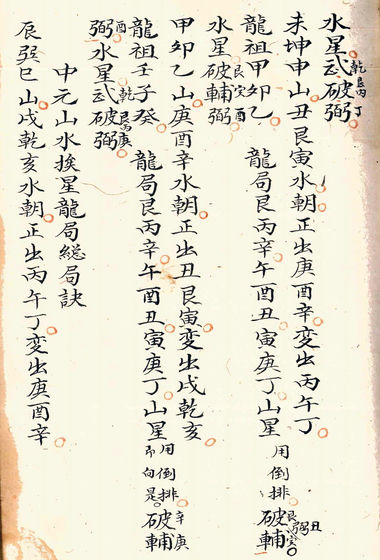 水星武破弼 乾艮丙丁
未坤申山丑艮寅水朝正出庚酉辛变出丙午丁
龍祖甲卯乙 龍局艮丙辛午酉丑寅庚丁山星 用倒排 破輔弼
水星破輔弼 艮亥酉
甲卯乙山庚酉辛水朝正出丑艮寅变出戌乾亥
龍祖壬子癸 龍局艮丙辛午酉丑寅庚丁山星 用倒排 而向是 破輔 辛庚
弼水星武破弼 酉 乾艮丙庚
中元山水挨星龍局総局訣
辰巽巳山戌乾亥水朝正出丙午丁变出庚酉辛